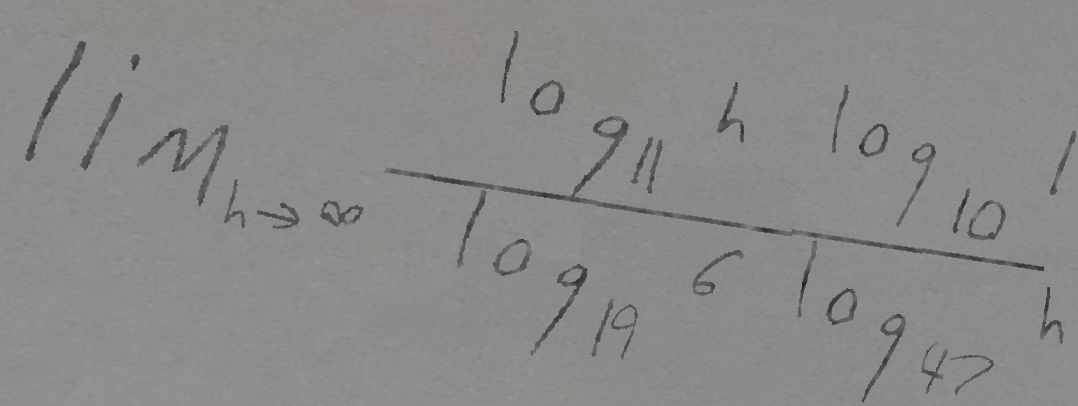 \lim_{h \to \infty} \frac{\log_{11} h \log_{10} 1}{\log_{19} 6 \log_{47} h}